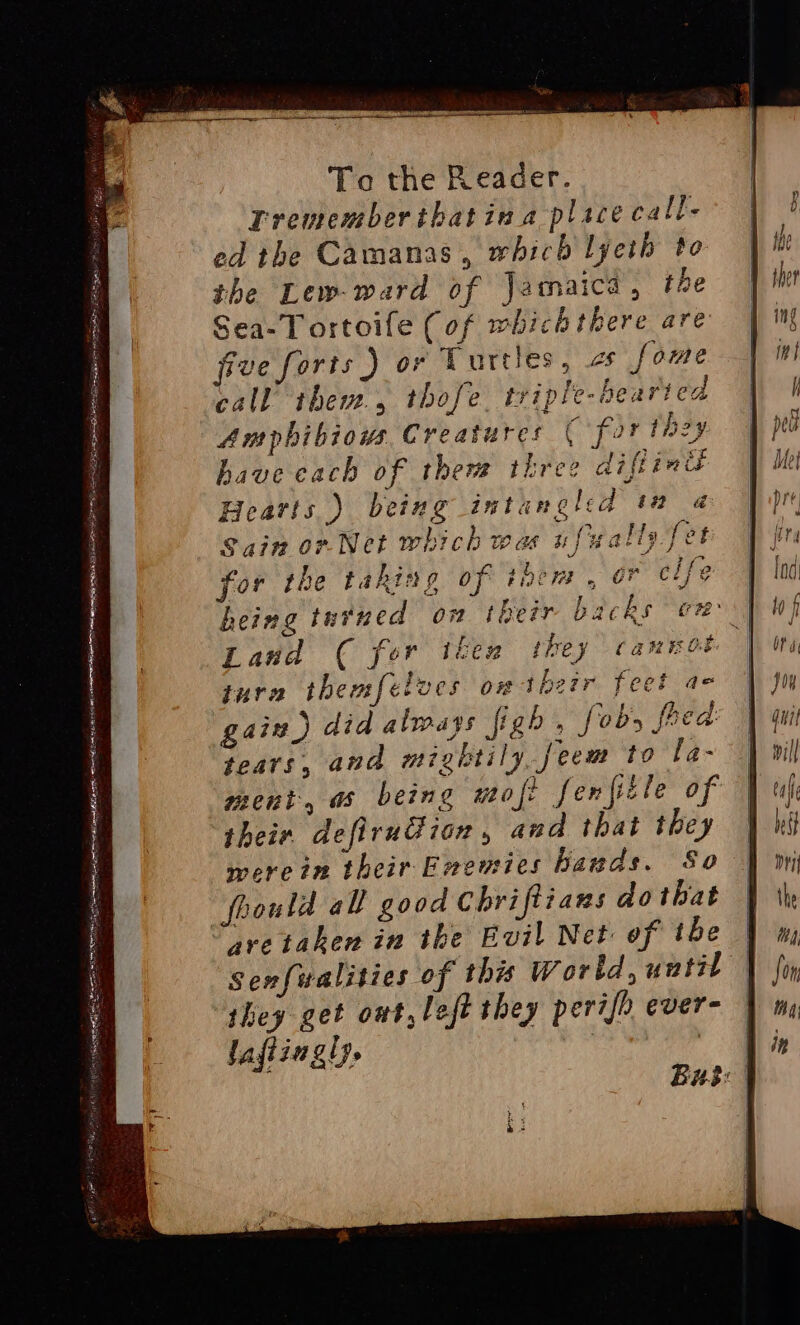 To the Reader.
I remember that in a place call-
ed the Camanas, which lyeth to
the Lew-ward of Jamaica, the
Sea-Tortoiſe (of which there are
five ſorts) or Turtles, as ſome
call them, thoſe triple-hearted
Amphibious Creatures (for they
have each of them three diſtinct
Hearts) being intangled in a
Sain or Net which was uſually ſet
for the taking of them, or elſe
being turned on their backs on
Land (for then they cannot
turn themſelves on their feet a-
gain) did always ſigh, ſob, ſhed
tears, and mightily ſeem to la-
ment, as being moſt ſenſible of
their deſtruction, and that they
were in their Enemies hands. So
ſhould all good Chriſtians do that
are taken in the Evil Net of the
Senſualities of this World, until
they get out, leſt they periſh ever-
laſtingly.
But
the
ther
ing
pre
to
you
quit
will
beſt
the
ma
in